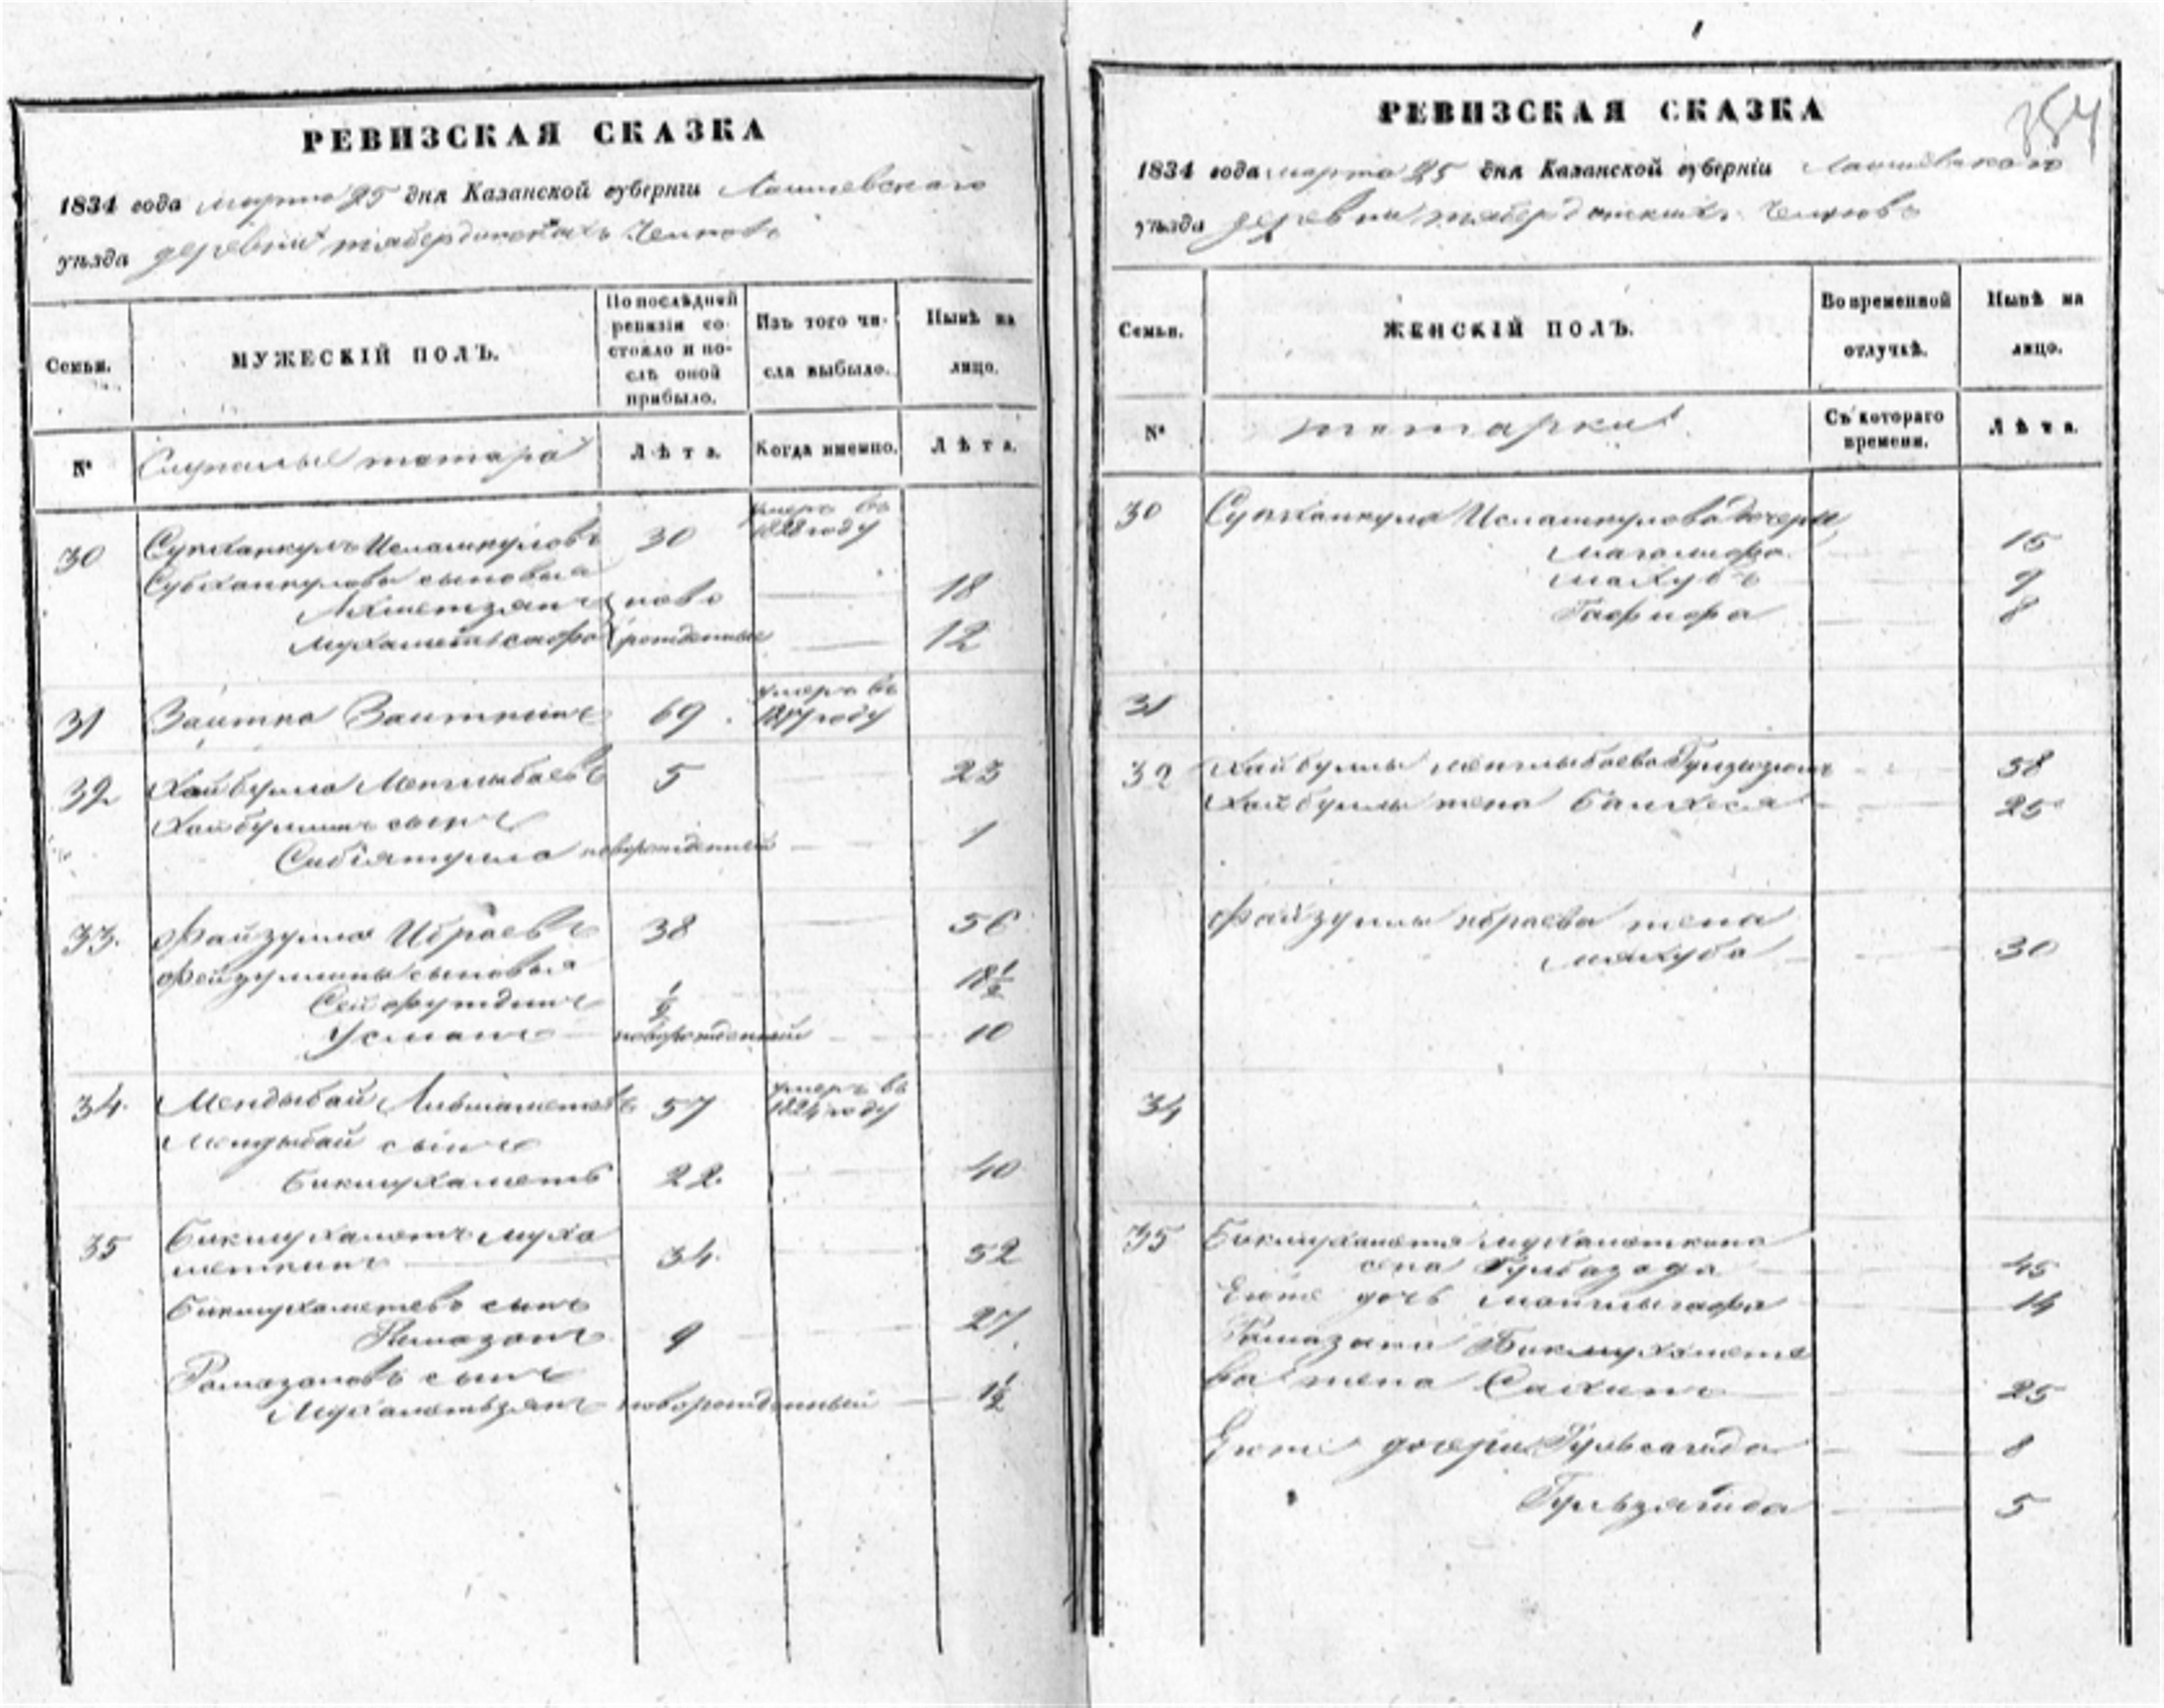 РЕВИЗСКАЯ СКАЗКА
1834 года марта 25 дня Казанской губерніи Лаишевскаго
уѣзда деревни тябердинскихъ Челновъ
Семьи.
МУЖЕСКІЙ ПОЛЪ.
По послѣдней ревизіи состояло и послѣ оной прибыло.
Изъ того числа выбыло.
Нынѣ на лицо.
№
Служилые татара
Лѣта.
Когда именно.
Лѣта.
30 Супханкулъ Исламкуловъ 30 умеръ въ 1828 году
Субханкулова сыновья
Ахметзянъ ново 18
рожденные 12
31 Заитко Заиткинъ 69 умеръ въ году
32 Хайбулла Менглыбаевъ 5 23
Хайбуллинъ сынъ
Сибіятулла новорожденный 1
33. Файзулла Ибраевъ 38 56
Фейзуллины сыновья
Сейфутдинъ ½ 18½
Усманъ новорожденный 10
34. Мендыбай 57 умеръ въ 1824 году
Мендыбай сынъ
Бикмухаметъ 22. 40
35 Бикмухаметъ Муха
меткинъ 34. 52
Бикмухаметевъ сынъ
Рамазанъ 9 27
Рамазановъ сынъ
Мухаметьзянъ новорожденный 1½
354
РЕВИЗСКАЯ СКАЗКА
1834 года марта 25 дня Казанской губерніи Лаишевскаго
уѣзда деревни тябердинскихъ Челновъ
Семьи.
ЖЕНСКІЙ ПОЛЪ.
Во временной отлучкѣ.
Нынѣ на лицо.
№
татарки
Съ котораго времени.
Лѣта.
30 Супханкула Исламкулова дочери
15
Махубъ 9
Гафифа 8
31
32 Хайбуллы менглыбаева 58
Хайбуллы жена Балхися 25
Файзуллы ибраева жена
махуба 30
34
35 Бикмухаметя мухаметкина
жена Гулбазада 45
Егоже дочь 14
Рамазана Бикмухамете
ва жена 25
Егоже дочери Гульсагида 8
Гульзягида 5